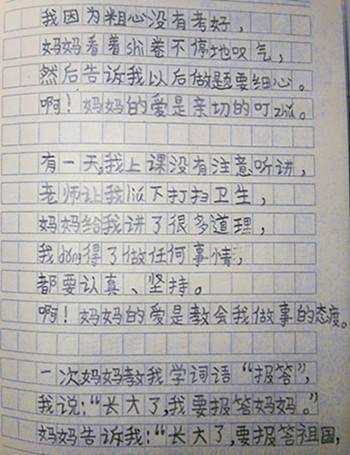 我因为粗心没有考好，
妈妈看着shì卷不停地叹气，
然后告诉我以后做题要细心。
啊！妈妈的爱是亲切的叮zhǔ。
有一天,我上课没有注意听讲，
老师让我liú下打扫卫生，
妈妈给我讲了很多道理，
我dǒng得了做任何事情，
都要认真、坚持。
啊！妈妈的爱是教会我做事的态度。
一次妈妈教我学词语“报答”，
我说：“长大了,我要报答妈妈。”
妈妈告诉我：“长大了,要报答祖国，